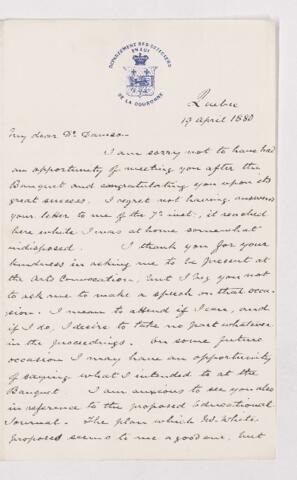 DEPARTEMENT DES OFFICIERS
EN LOI
DE LA COURONNE
Quebec
19 April 1880
My dear Dr. Dawson
I am sorry not to have had
an opportunity of meeting you after the
Banquet and congratulating you upon its
great success. I regret not having answered
your letter to me of the 7th inst; it reached
here while I was at home somewhat
indisposed. I thank you for your
kindness in asking me to be present at
the Arts Convocation, but I beg you not
to ask me to make a speech on that occa-
sion. I mean to attend if I can, and
if I do, I desire to take no part whatever
in the proceedings. On some future
occasion I may have an opportunity
of saying what I intended to at the
Banquet. I am anxious to see you also
in reference to the proposed Educational
Journal. The plan which Mr. White
proposes seems to me a good one, but